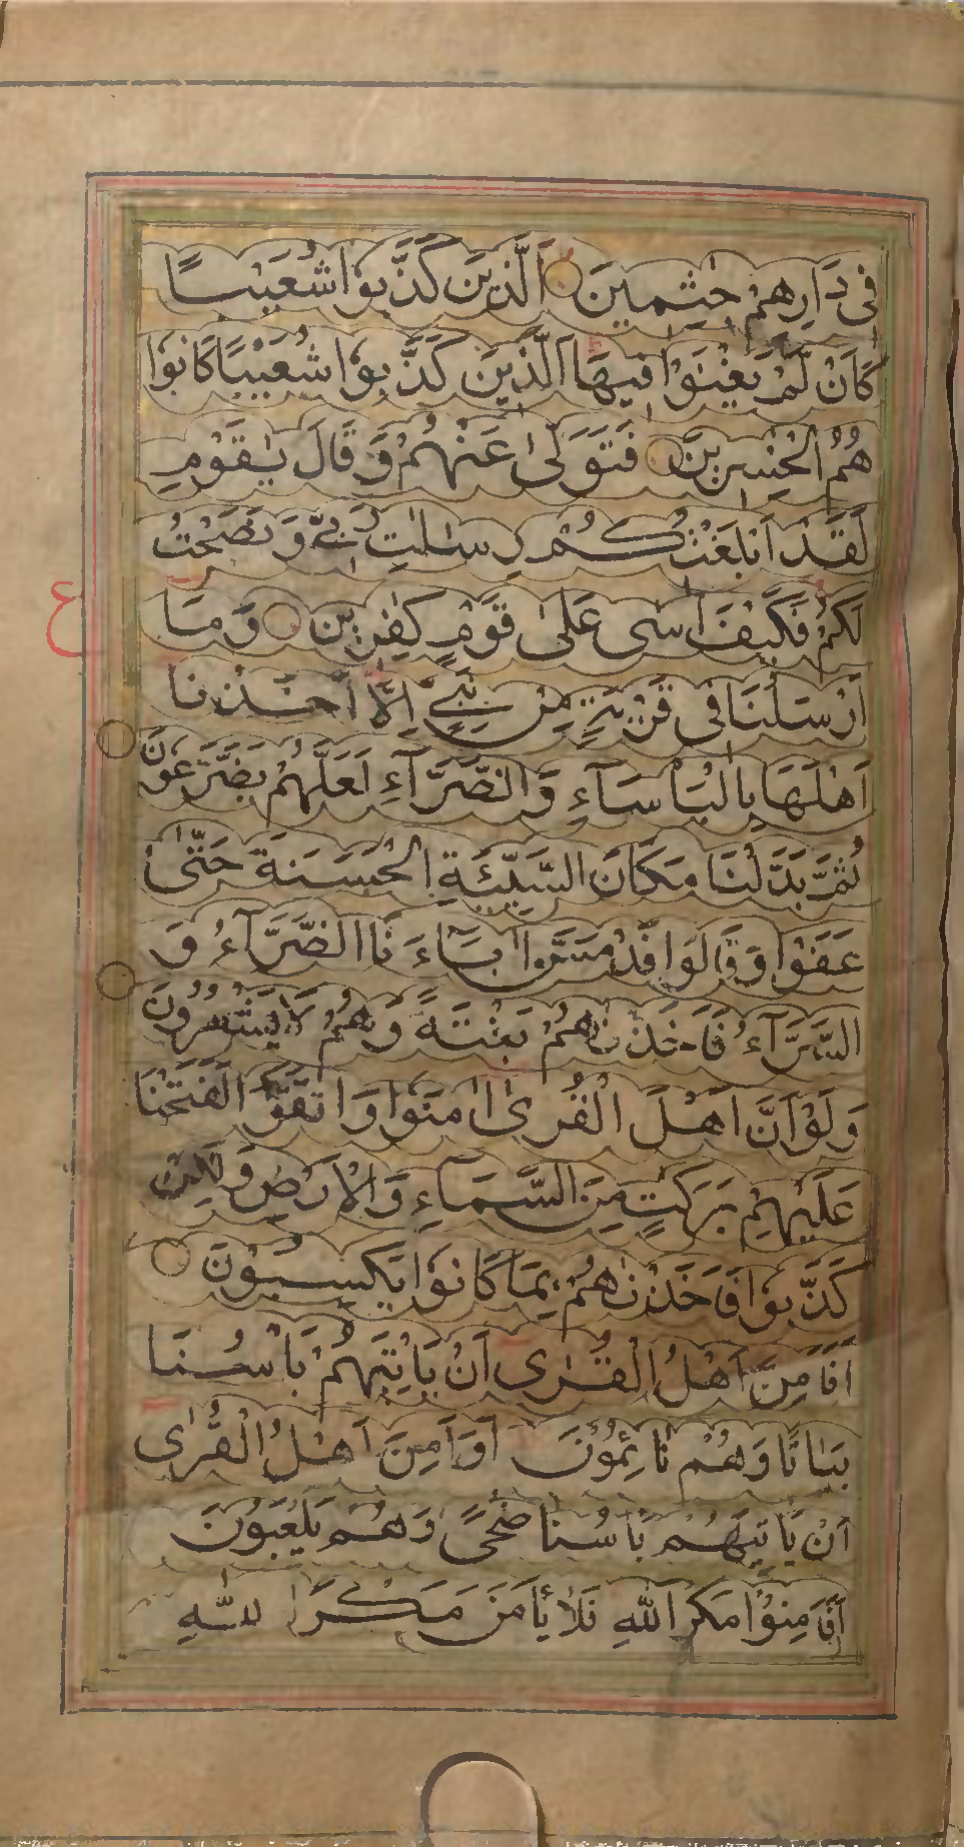 فِى دَارِهِمْ جٰثِمِينَ الَّذِينَ كَذَّبُوا شُعَيْبًا
كَانْ لَّمْ يَغْنَوْا فِيهَا اَلَّذِينَ كَذَّبُوا شُعَيْبًا كَانُوْا
هُمُ الْخٰسِرِينَ فَتَوَلّٰى عَنْهُمْ وَ قَالَ يٰقَوْمِ
لَقَدْ اَبْلَغْتُكُمْ رِسٰلٰتِ رَبِّىْ وَ نَصَحْتُ
لَكُمْ فَكَيْفَ اٰسٰى عَلٰى قَوْمٍ كٰفِرِيْنَ وَ مَا
ع
اَرْسَلْنَا فِى قَرْيَةٍ مِّنْ نَّبِىٍّ اِلَّا اَخَذْنَا
اَهْلَهَا بِالْبَاْسَآءِ وَ الضَّرَّآءِ لَعَلَّهُمْ يَضَّرَّعُوْنَ
ثُمَّ بَدَّلْنَا مَكَانَ السَّيِّئَةِ الْحَسَنَةَ حَتّٰى
عَفَوْا وَ قَالُوْا قَدْ مَسَّ اٰبَآءَ نَا الضَّرَّآءُ وَ
السَّرَّآءُ فَاَخَذْنٰهُمْ بَغْتَةً وَّ هُمْ لَا يَشْعُرُوْنَ
وَ لَوْ اَنَّ اَهْلَ الْقُرٰى اٰمَنُوْا وَ اتَّقَوْا لَفَتَحْنَا
عَلَيْهِمْ بَرَكٰتٍ مِّنَ السَّمَآءِ وَ الْاَرْضِ وَ لٰكِنْ
كَذَّبُوْا فَاَخَذْنٰهُمْ بِمَا كَانُوْا يَكْسِبُوْنَ
اَفَاَمِنَ اَهْلُ الْقُرٰى اَنْ يَّاْتِيَهُمْ بَاْسُنَا
بَيَاتًا وَّ هُمْ نَائِمُوْنَ اَوَ اَمِنَ اَهْلُ الْقُرٰى
اَنْ يَّاْتِيَهُمْ بَاْسُنَا ضُحًى وَّ هُمْ يَلْعَبُوْنَ
اَفَاَمِنُوْا مَكْرَ اللّٰهِ فَلَا يَاْمَنُ مَكْرَ اللّٰهِ